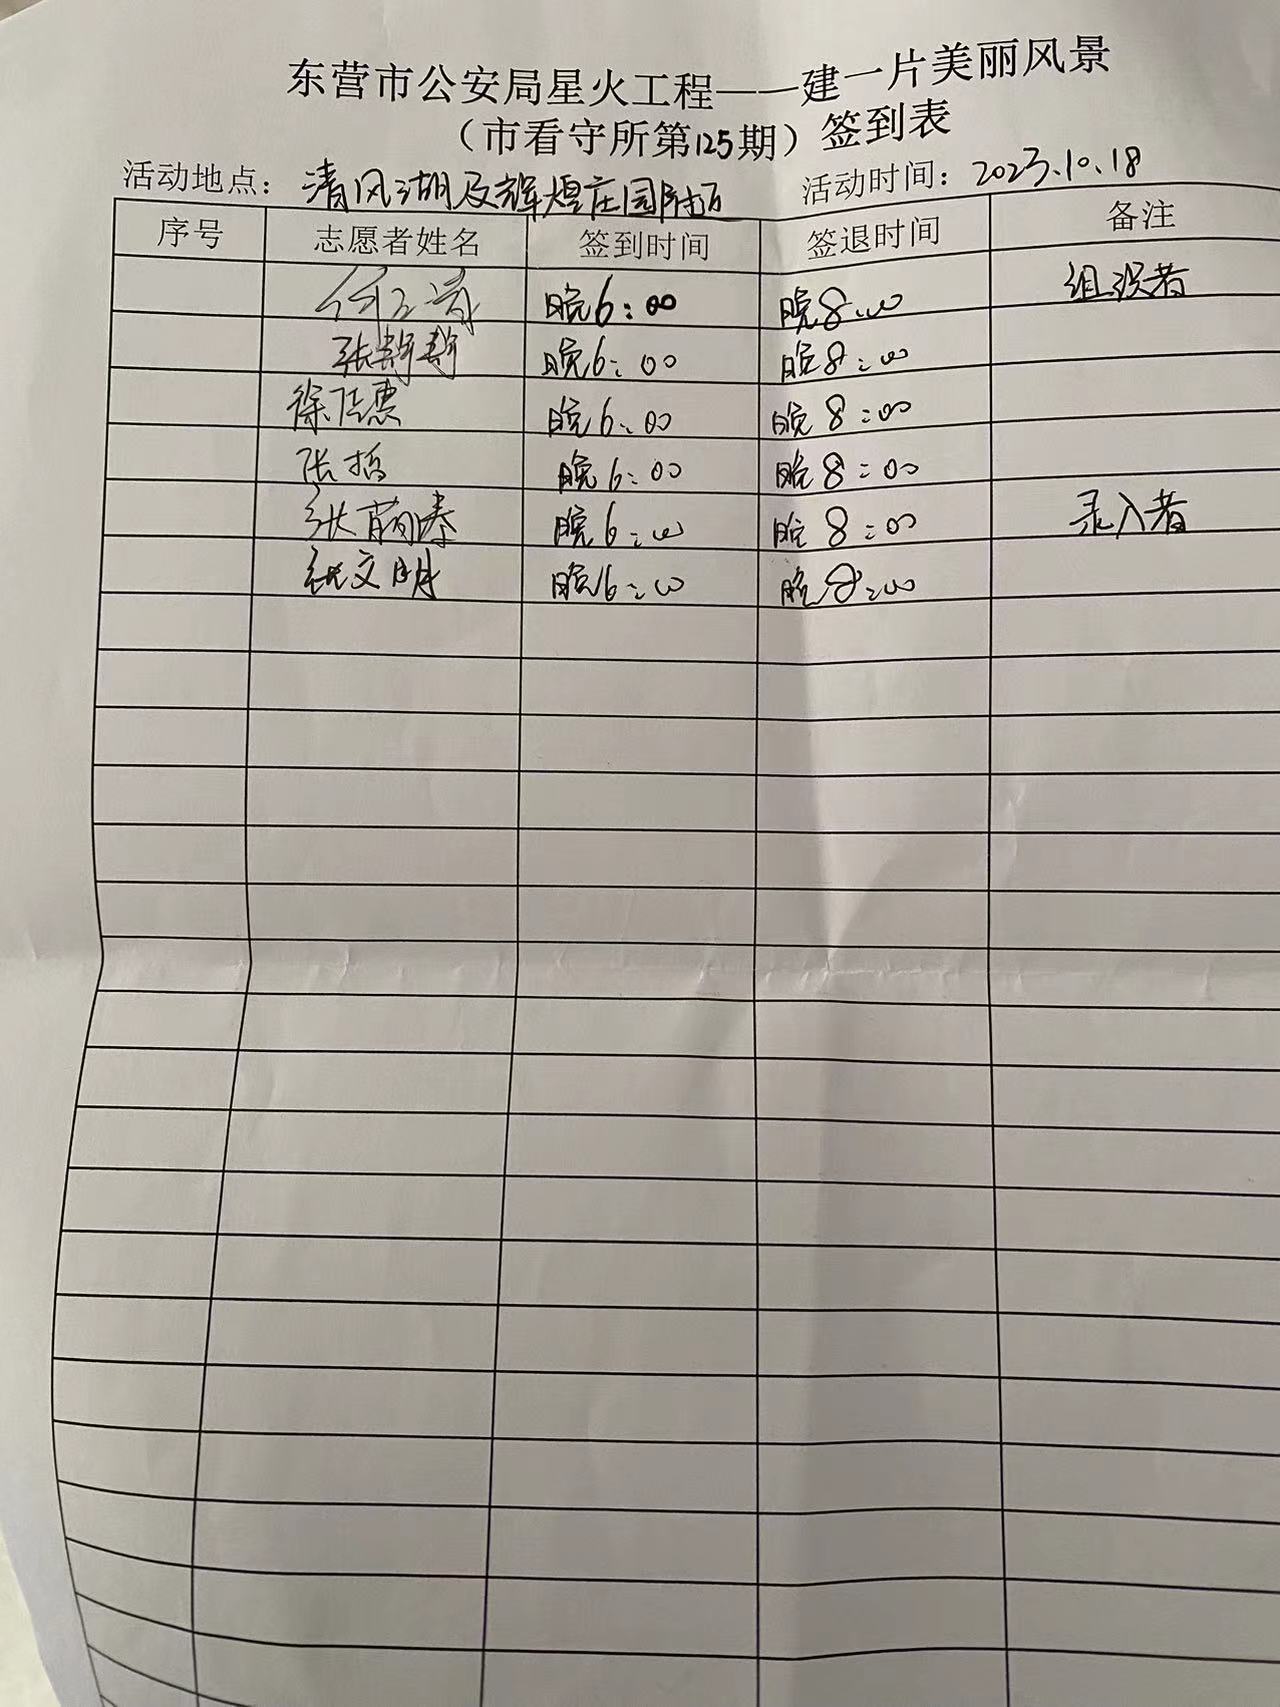 东营市公安局星火工程——建一片美丽风景
（市看守所第125期）签到表
活动地点：清风湖及辉煌庄园附近 活动时间：2023.10.18
序号 志愿者姓名 签到时间 签退时间 备注
晚6:00 晚8:00 组织者
张静静 晚6:00 晚8:00
徐 惠 晚6:00 晚8:00
张哲 晚6:00 晚8:00
张 晚6:00 晚8:00 录入者
文明 晚6:00 晚8:00